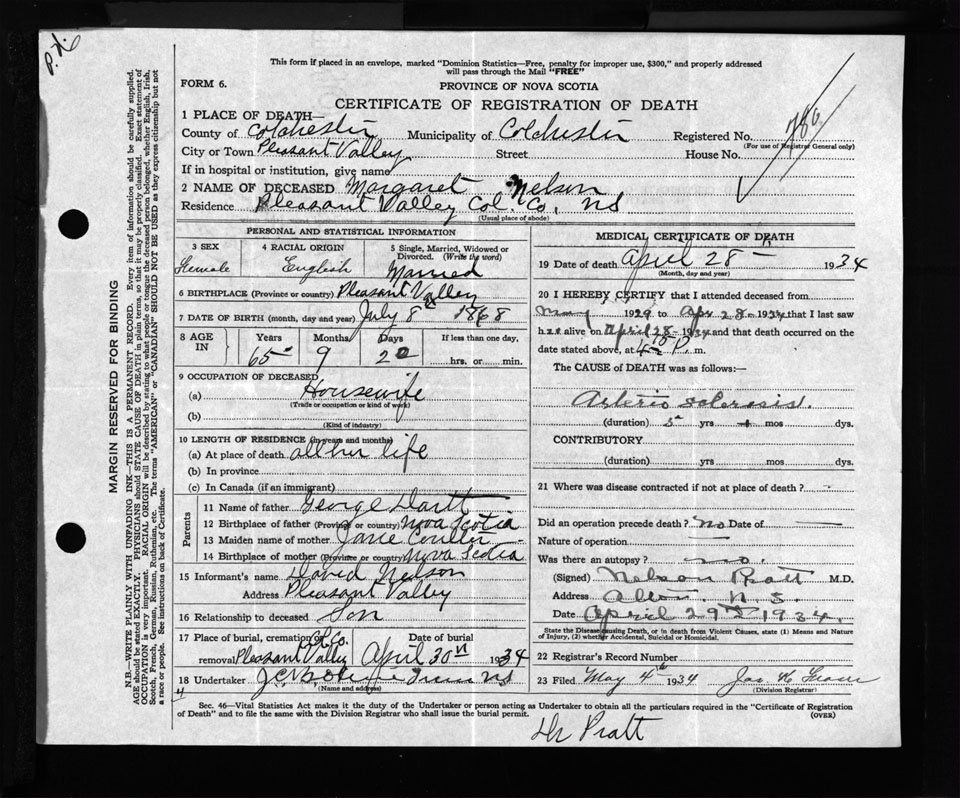 P.X.
This form if placed in an envelope, marked "Dominion Statistics—Free, penalty for improper use, $300," and properly addressed
will pass through the Mail "FREE"
FORM 6.
PROVINCE OF NOVA SCOTIA
CERTIFICATE OF REGISTRATION OF DEATH
1 PLACE OF DEATH—
County of Colchester Municipality of Colchester Registered No. 786
(For use of Registrar General only)
City or Town Pleasant Valley Street House No.
If in hospital or institution, give name
2 NAME OF DECEASED Margaret Nelson
Residence Pleasant Valley Col. Co, NS
(Usual place of abode)
PERSONAL AND STATISTICAL INFORMATION
3 SEX 4 RACIAL ORIGIN 5 Single, Married, Widowed or Divorced. (Write the word)
Female English Married
6 BIRTHPLACE (Province or country) Pleasant Valley
7 DATE OF BIRTH (month, day and year) July 8 1868
8 AGE IN Years Months Days If less than one day,
65 9 20 hrs. or min.
9 OCCUPATION OF DECEASED
(a) Housewife
(Trade or occupation or kind of work)
(b)
(Kind of industry)
10 LENGTH OF RESIDENCE (in years and months)
(a) At place of death all her life
(b) In province
(c) In Canada (if an immigrant)
Parents
11 Name of father George Dartt
12 Birthplace of father (Province or country) Nova Scotia
13 Maiden name of mother Jane Coulter
14 Birthplace of mother (Province or country) Nova Scotia
15 Informant's name David Nelson
Address Pleasant Valley
16 Relationship to deceased Son
17 Place of burial, cremation Col. Co. Date of burial
removal Pleasant Valley April 30th 1934
18 Undertaker NS
(Name and address)
MEDICAL CERTIFICATE OF DEATH
19 Date of death April 28 — 1934
(Month, day and year)
20 I HEREBY CERTIFY that I attended deceased from
May 1929 to Apr 28 - 1934 that I last saw
her alive on April 28 - 1934 and that death occurred on
date stated above, at 4 P. m.
The CAUSE of DEATH was as follows:—
Arterio sclerosis.
(duration) 5 yrs mos dys.
CONTRIBUTORY
(duration) yrs mos dys.
21 Where was disease contracted if not at place of death? -
Did an operation precede death? no Date of —
Nature of operation —
Was there an autopsy? no.
(Signed) Nelson Pratt M.D.
Address N.S.
Date April 29th 1934.
State the Disease causing Death, or in death from Violent Causes, state (1) Means and Nature of Injury, (2) whether Accidental, Suicidal or Homicidal.
22 Registrar's Record Number
23 Filed May 4th 1934 Jas. K Fraser
(Division Registrar)
Sec. 46—Vital Statistics Act makes it the duty of the Undertaker or person acting as Undertaker to obtain all the particulars required in the "Certificate of Registration
of Death" and to file the same with the Division Registrar who shall issue the burial permit. (OVER)
Dr Pratt
MARGIN RESERVED FOR BINDING
N.B.—WRITE PLAINLY WITH UNFADING INK—THIS IS A PERMANENT RECORD. Every item of information should be carefully supplied.
AGE should be stated EXACTLY. PHYSICIANS should STATE CAUSE OF DEATH in plain terms, so that it may be properly classified. Exact statement of
OCCUPATION is very important. RACIAL ORIGIN will be described by stating to what people or tongue the deceased person belonged, whether English, Irish,
Scotch, French, German, Russian, Ruthenian, etc. The terms "AMERICAN" or "CANADIAN" SHOULD NOT BE USED as they express citizenship but not
a race or people. See instructions on back of Certificate.